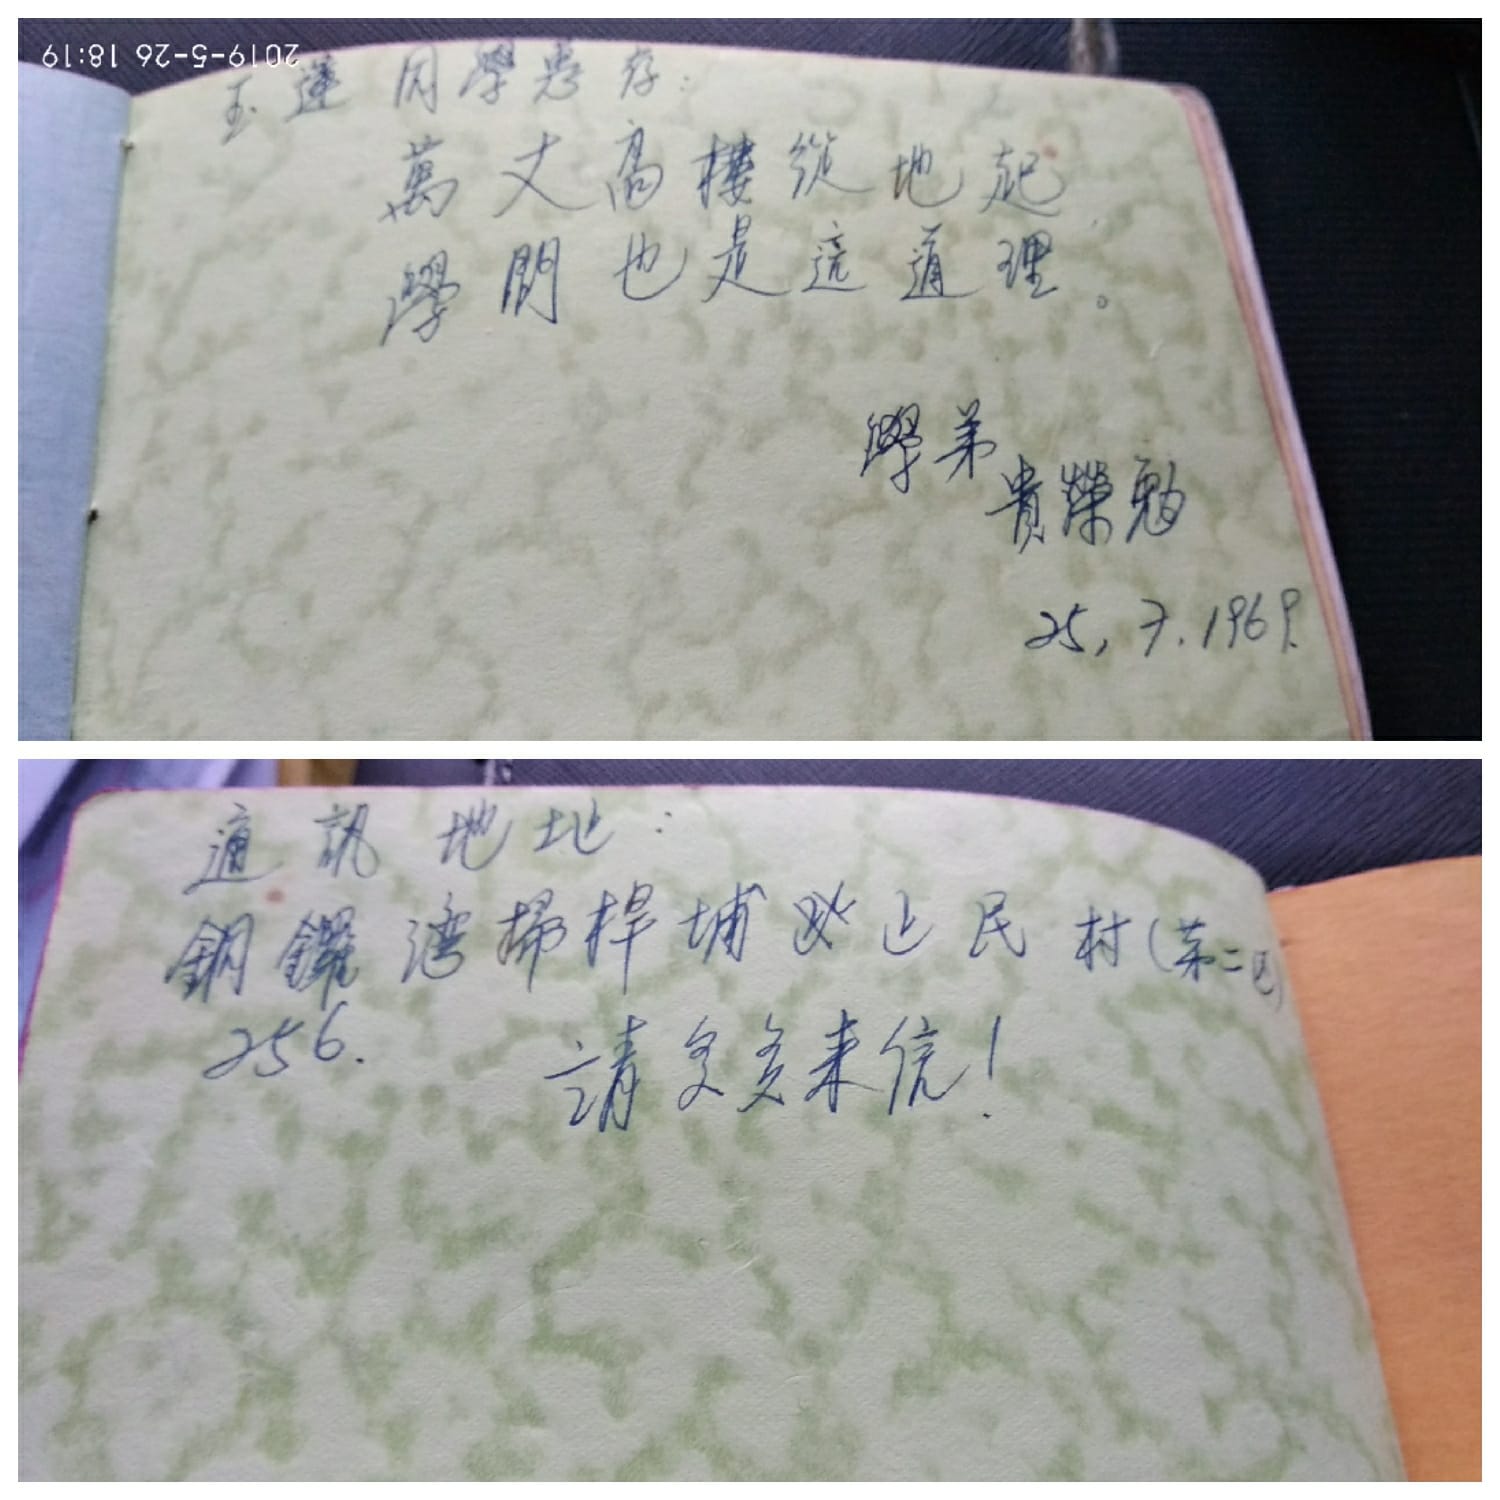 2019-5-26 18:19
玉蓮同學惠存:
萬丈高樓從地起
學問也是這道理。
學弟
貴榮勉
25, 7. 1969.
通訊地址:
銅鑼灣掃桿埔 民村(第二區)
256. 請多多來信!